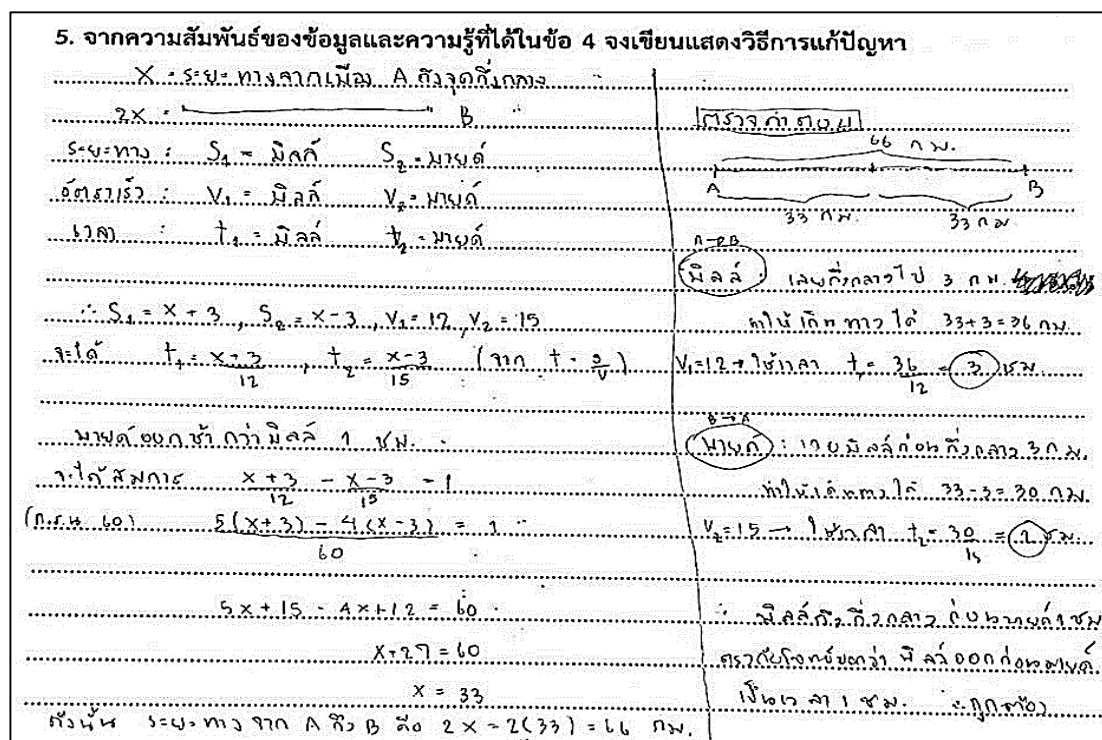 5. จากความสัมพันธ์ของข้อมูลและความรู้ที่ได้ในข้อ 4 จงเขียนแสดงวิธีการแก้ปัญหา
X = ระยะทางจากเมือง A ถึงจุดกึ่งกลาง
2X = B
ระยะทาง : S₁ = มิลล์ S₂ = มายด์
อัตราเร็ว : V₁ = มิลล์ V₂ = มายด์
เวลา : t₁ = มิลล์ t₂ = มายด์
∴ S₁ = X + 3 , S₂ = X - 3 , V₁ = 12 , V₂ = 15
จะได้ t₁ = X + 3 / 12 , t₂ = X - 3 / 15 (จาก t = s/v)
มายด์ออกช้ากว่ามิลล์ 1 ชม.
จะได้สมการ X + 3 / 12 - X - 3 / 15 = 1
(ค.ร.น 60) 5(X+3) - 4(X-3) / 60 = 1
5X + 15 - 4X + 12 = 60
X + 27 = 60
X = 33
ดังนั้น ระยะทางจาก A ถึง B คือ 2X = 2(33) = 66 กม.
ตรวจคำตอบ
66 กม.
A B
33 กม. 33 กม
A→B
มิลล์ : เลยกึ่งกลางไป 3 กม.
ทำให้เดินทางได้ 33+3 = 36 กม.
V₁ = 12 → ใช้เวลา t₁ = 36/12 = 3 ชม.
B→A
มายด์ : เจอมิลล์ก่อนกึ่งกลาง 3 กม.
ทำให้เดินทางได้ 33-3 = 30 กม.
V₂ = 15 → ใช้เวลา t₂ = 30/15 = 2 ชม.
∴ มิลล์ถึงกึ่งกลางก่อนมายด์ 1 ชม
ตรงกับโจทย์บอกว่า มิลล์ออกก่อนมายด์
เป็นเวลา 1 ชม. ∴ ถูกต้อง